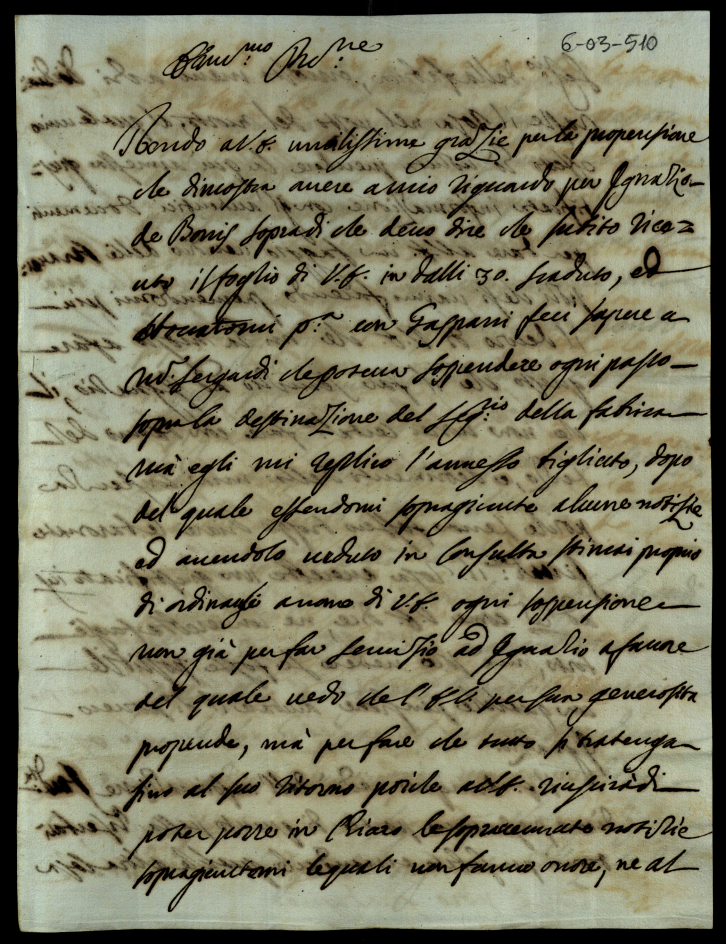 6-03-510
Rendo a V.E. umilissime grazie per la propensione
che dimostra avere a mio riguardo per Ignazio
de Bonis sopra di che devo dire che subito rice=
uto il foglio di V.E. in dalli 30. scaduto, ed
con Gasparri feci sapere a
sospendere ogni passo
sopra la destinazione del della fabrica
mà egli mi replicò l'annesso biglietto, dopo
del quale essendomi sopragiunte alcune notizie
ed avendolo veduto in Consulta stimai proprio
di ordinargli a nome di V.E. ogni sospensione
non già per far servizio ad Ignazio a favore
del quale vedo che l'E.V. per sua generosità
propende, mà per fare che tutto si trattenga
sino al suo ritorno poiche a V.E. riuscirà di
poter porre in chiaro le sopraccennate notizie
sopragiuntemi le quali non fanno onore, ne al